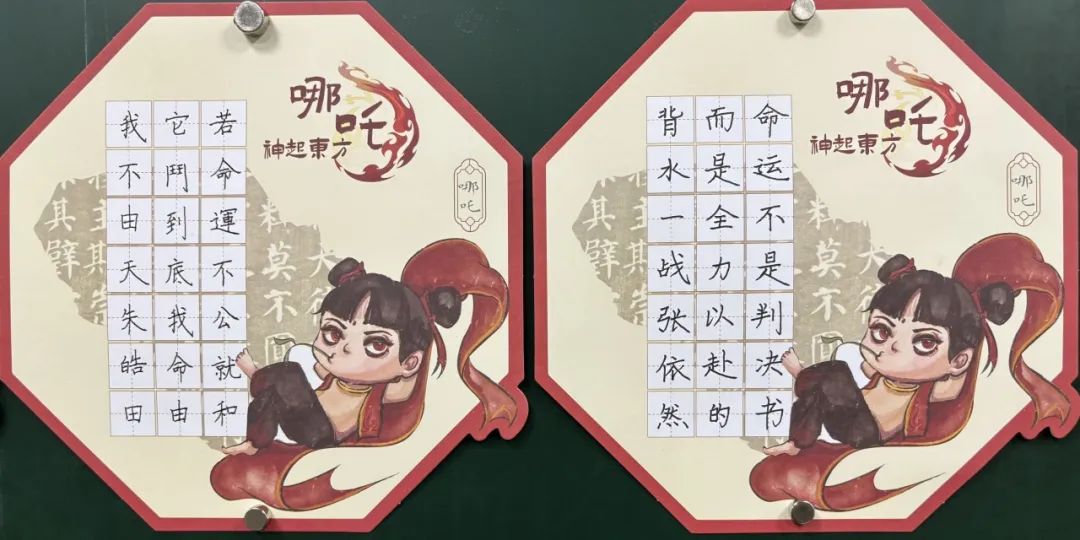 哪吒
神起東方
哪吒
若命運不公就和
它鬥到底我命由
我不由天朱皓田
哪吒
神起東方
哪吒
命运不是判决书
而是全力以赴的
背水一战张依然